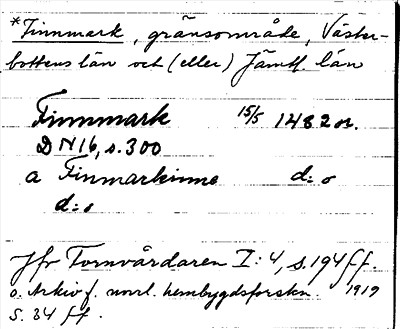 *Finnmark, gränsområde, Väster-
bottens län och (eller) Jämtl. län
Finnmark 15/5 1482 or.
DN 16, s. 300
a Finmarkinne d:o
d:o
Jfr Fornvårdaren I:4, s. 194 ff.
o. Arkiv f. norrl. hembygdsforskn. 1919
S. 34 ff.